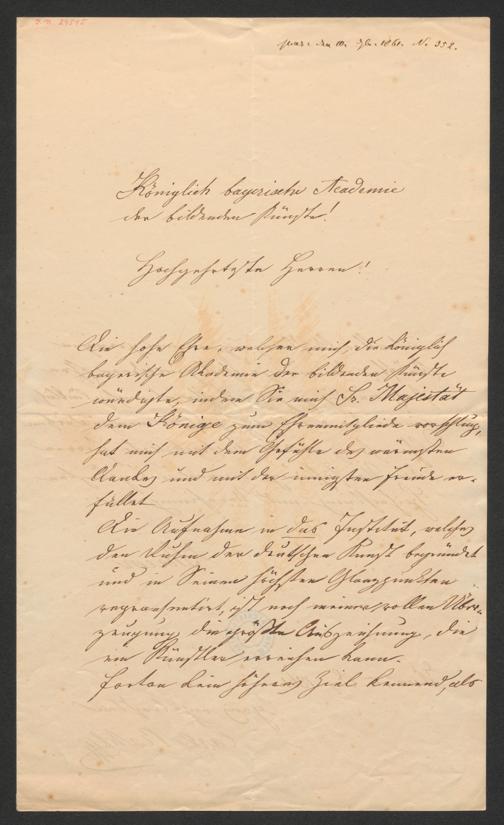 J.N. 24545
den 10. 1861. N. 352.
Königlich bayerische Academie
der bildenden Künste!
Hochgeehrteste Herren!
Die hohe Ehre, welcher mich die Königlich
bayerische Akademie der bildenden Künste
würdigte, indem Sie mich Sr. Majestät
dem Könige zum Ehrenmitgliede vorschlug,
hat mich mit dem Gefühle des wärmsten
Dankes und mit der innigsten Freude er-
füllet.
Die Aufnahme in das Institut, welches
den Ruhm der deutschen Kunst begründet
und in Seinen höchsten Glanzpunkten
repraesentirt, ist nach meiner vollen Über-
zeugung die größte Auszeichnung, die
ein Künstler erreichen kann.
Fortan kein höheres Ziel kennend, als